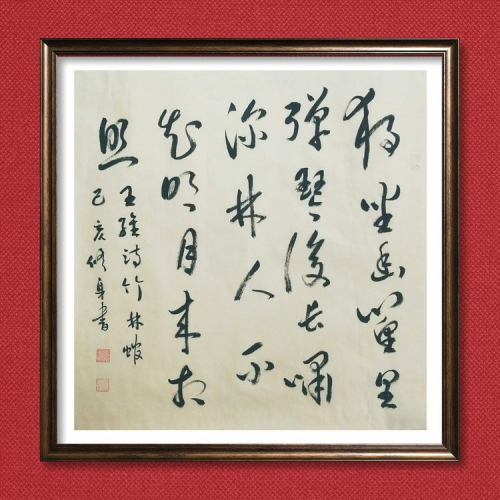 独坐幽篁里
弹琴复长啸
深林人不
知明月来相
照
王维诗竹林馆
己亥修身书